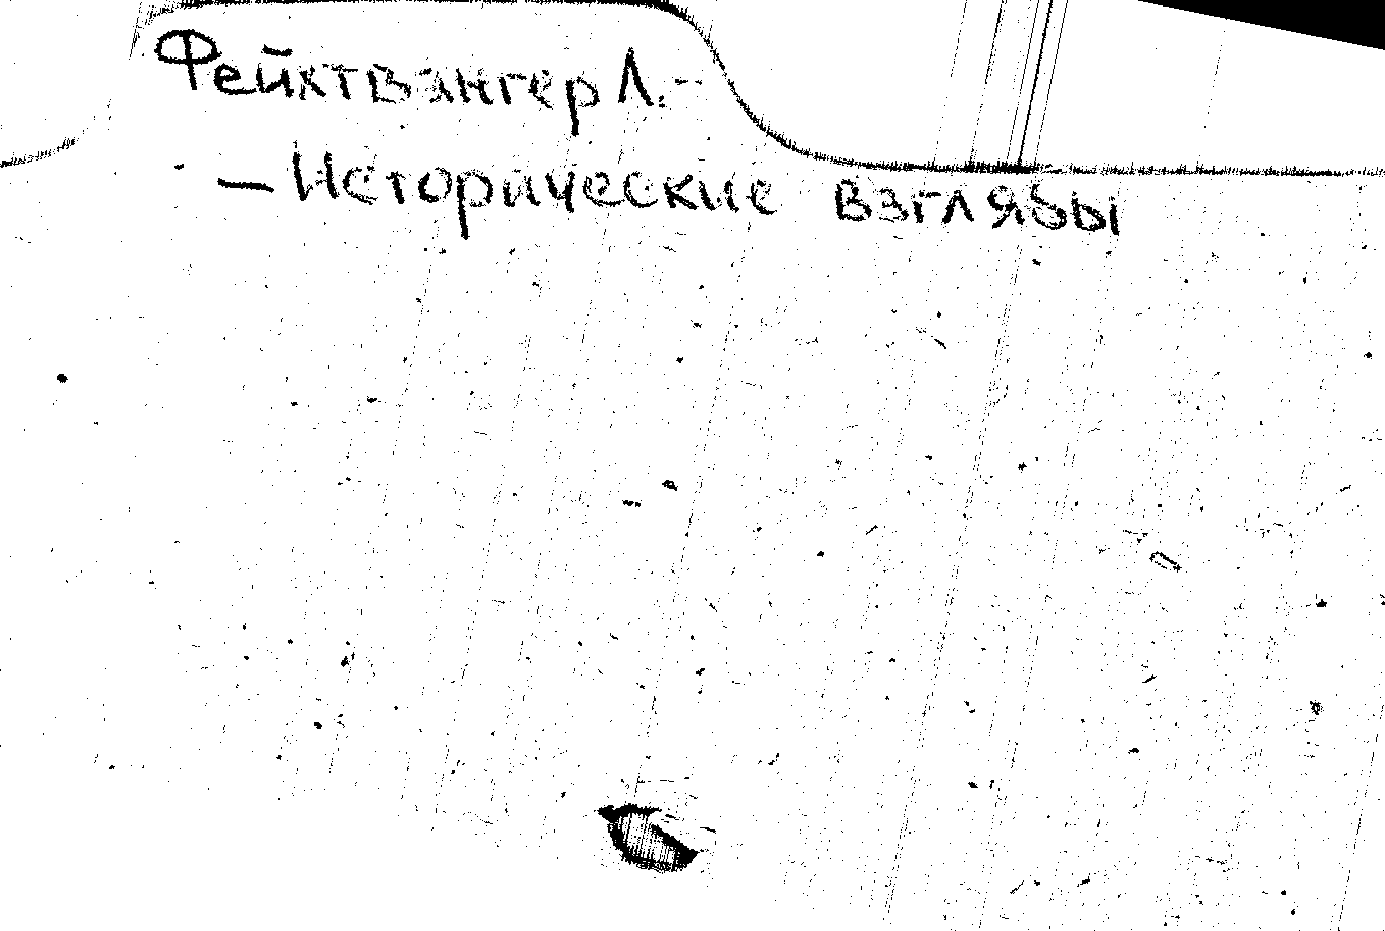 Фейхтвангер Л. --
— Исторические взгляды